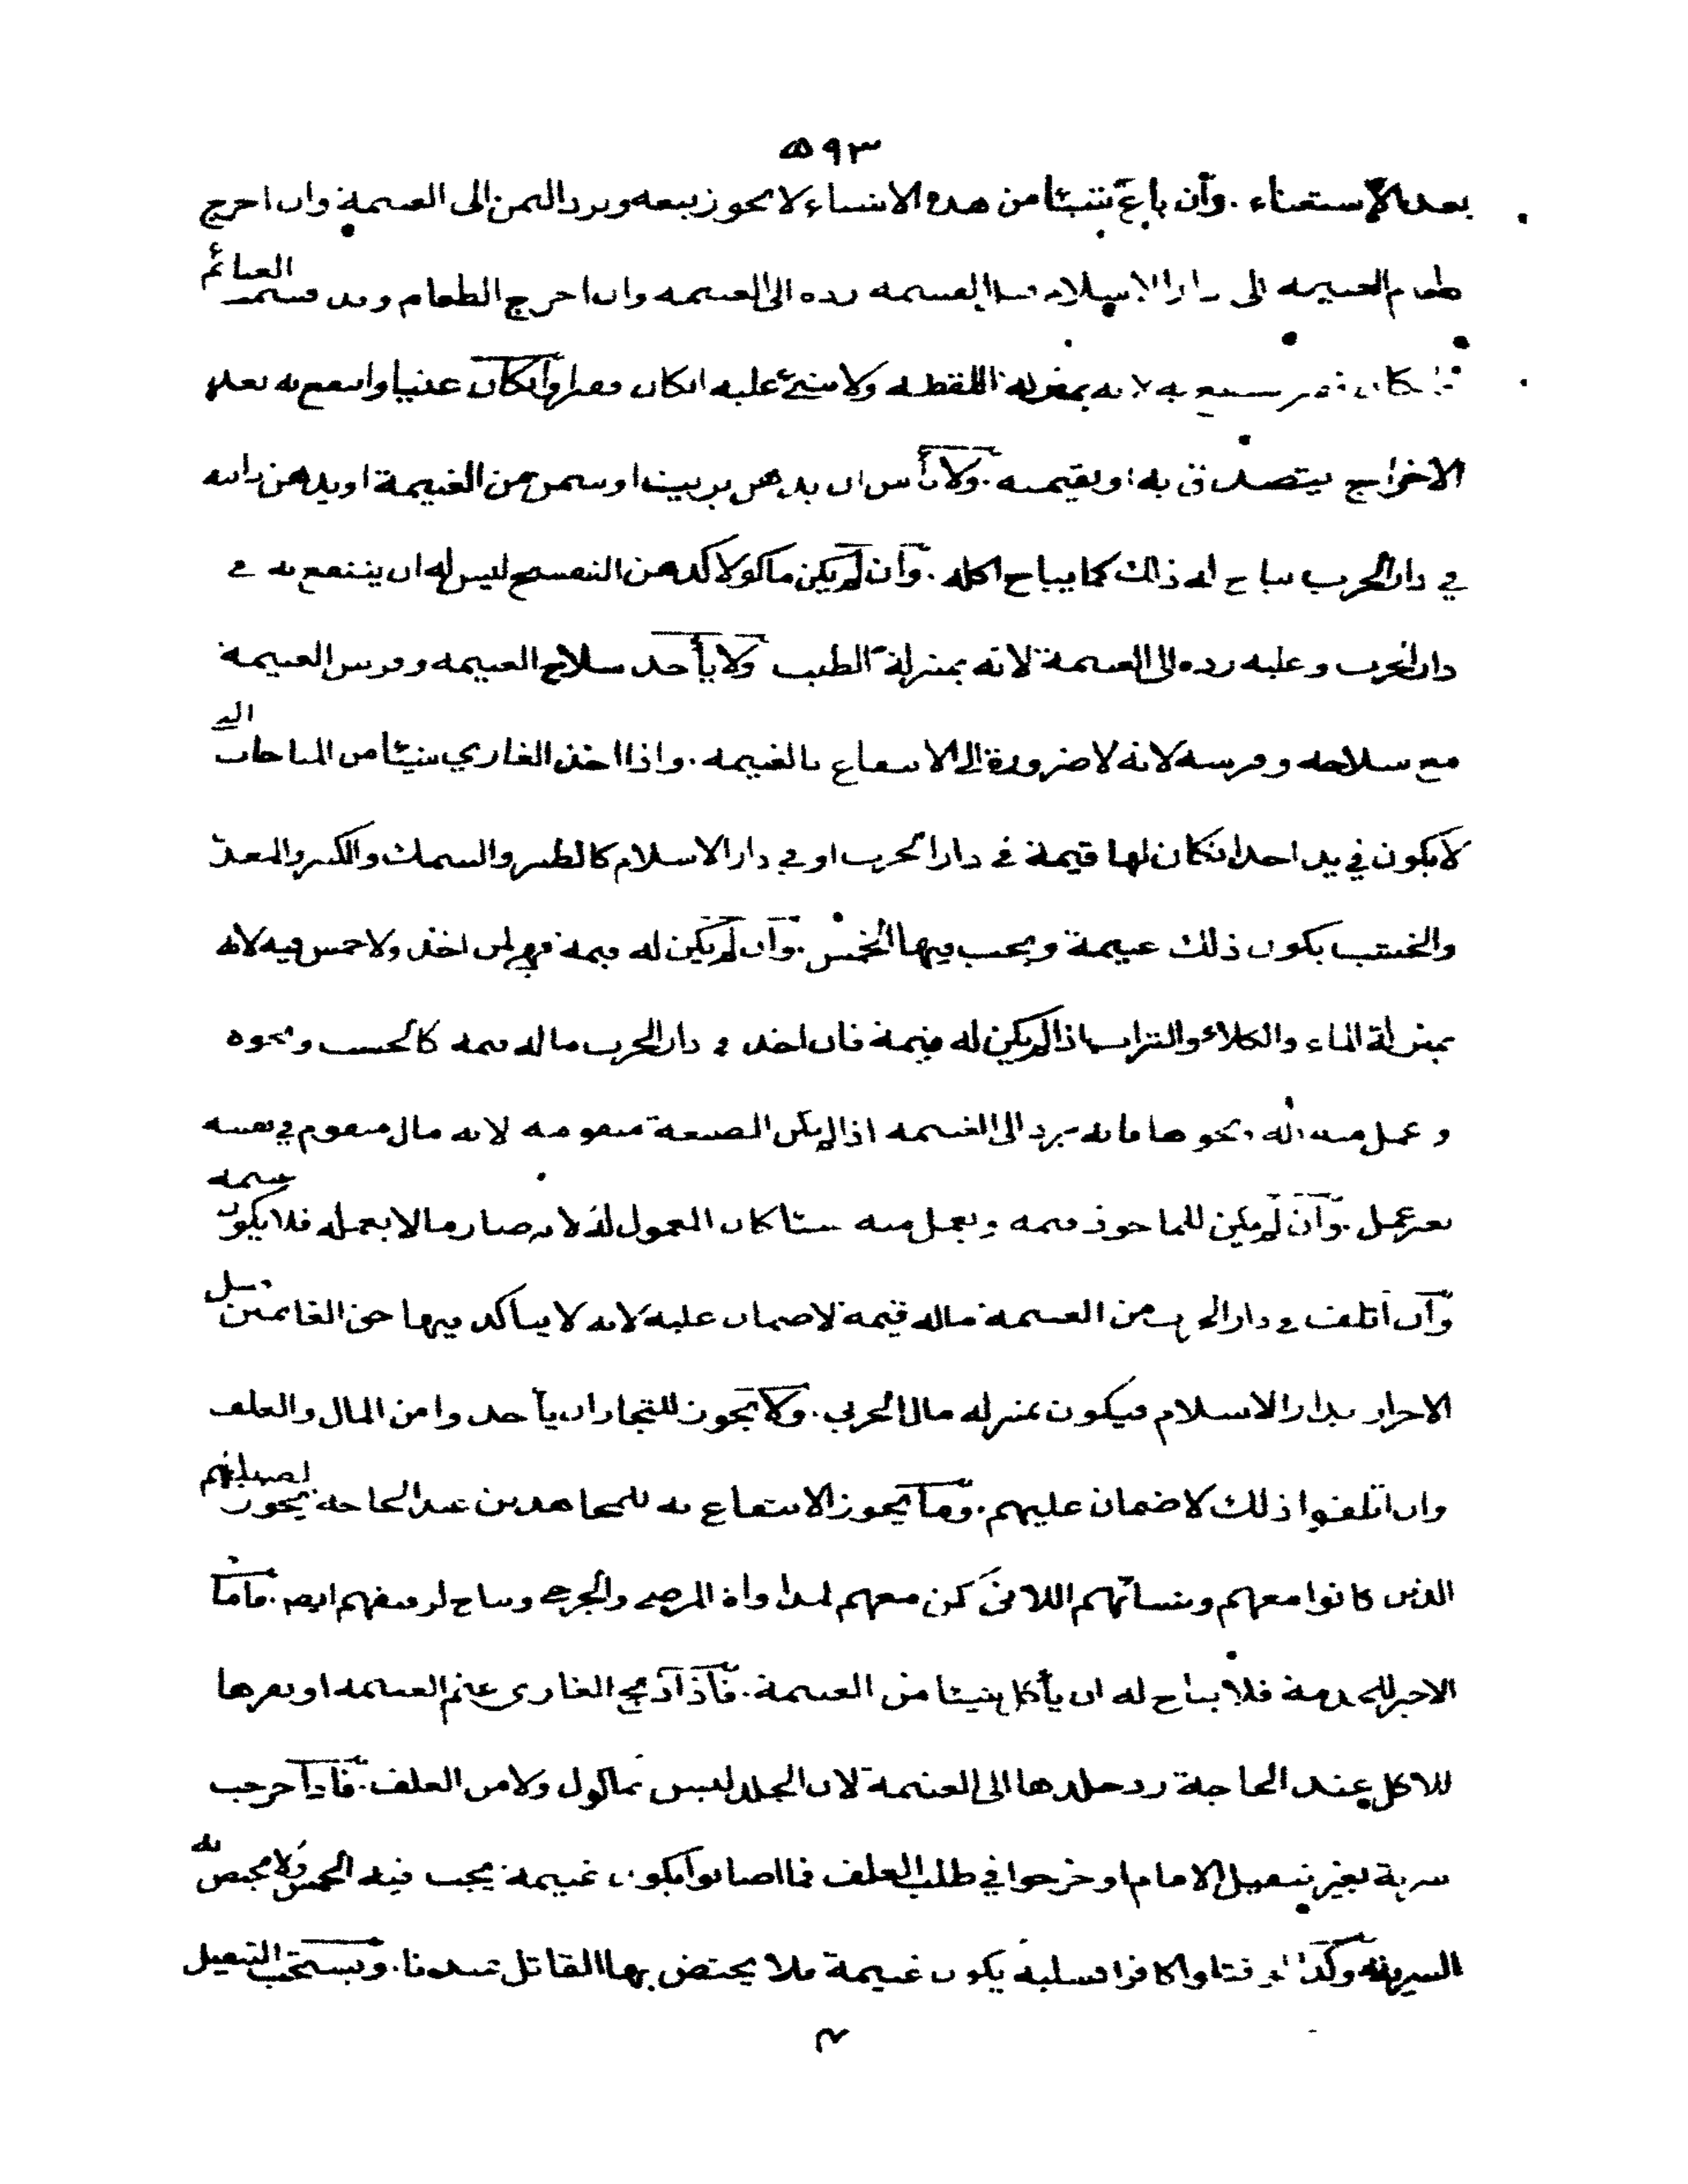 ٥٩٣
بعد الاستغناء . وان باع شيئا من هذه الاشياء لا يجوز بيعه ويرد الثمن الى الغنيمة وان اخرج
طعام الغنيمه الى دار الاسلام قبل القسمه رده الى الغنيمه وان اخرج الطعام وقد قسمت الغنائم
كان به لانه بمنزلة اللقطه ولا شيئ عليه ان كان فقيرا وان كان غنيا وانتفع به بعد
الاخراج يتصدق به او بقيمته . ولا بأس ان يدهن بزيت او سمن من الغنيمة او يدهن دابته
في دار الحرب يباح له ذلك كما يباح اكله . وان لم يكن ماكولا كدهن البنفسج ليس له ان ينتفع به في
دار الحرب وعليه رده الى الغنيمة لانه بمنزلة الطيب ولا يأخذ سلاح الغنيمه وفرس الغنيمة
مع سلاحه وفرسه لانه لا ضرورة الى الانتفاع بالغنيمه . واذا اخذ الغازي شيئا من المباحات التي
لا يكون في يد احد ان كان لها قيمة في دار الحرب او في دار الاسلام كالطير والسمك والكنز والمعدن
والخشب يكون ذلك غنيمة ويجب فيها الخمس . وان لم يكن له قيمة فهي لمن اخذ ولا خمس فيه لانه
بمنزلة الماء والكلاء والتراب اذا لم يكن له قيمة فان اخذ في دار الحرب ما له قيمه كالخشب ونحوه
و عمل منه ونحوها فانه يرد الى الغنيمه اذا لم يكن الصنعة متقومه لانه مال متقوم في نفسه
بغير عمل . وان لم يكن للماخوذ قيمه ويعمل منه شيئا كان المعمول له لانه صار مالا بعمله فلا يكون غنيمه
وان اتلف في دار الحرب من الغنيمة ما له قيمة لا ضمان عليه لانه لا يتأكد فيها حق الغانمين قبل
الاحراز بدار الاسلام فيكون بمنزله مال الحربي . ولا يجوز للتجار ان يأخذوا من المال والعلف
وان اتلفوا ذلك لا ضمان عليهم . وما يجوز الانتفاع به للمجاهدين عند الحاجه يجوز لصبيانهم
الذين كانوا معهم ونسائهم اللاتي كن معهم لمداواة المرضى والجرحى ويباح لرقيقهم ايضا . فاما
الاجير للخدمة فلا يباح له ان يأكل شيئا من الغنيمة . فاذا ذبح الغازى غنم الغنيمه او بقرها
للاكل عند الحاجة رد جلدها الى الغنيمة لان الجلد ليس بماكول ولا من العلف . فاذا خرجت
سرية بغير تنفيل الامام او خرجوا في طلب العلف فما اصابوا يكون غنيمة يجب فيه الخمس ولا يختص به
السرية وكذا قتلوا كافرا فسلبه يكون غنيمة فلا يختص بها القاتل عندنا . ويستحب التنفيل